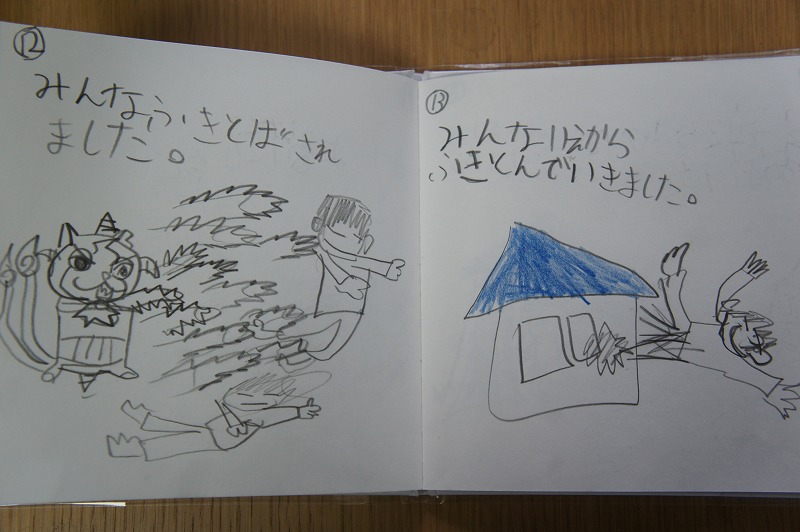 ⑫
みんなふきとばされ
ました。
⑬
みんないえから
ふきとんでいきました。